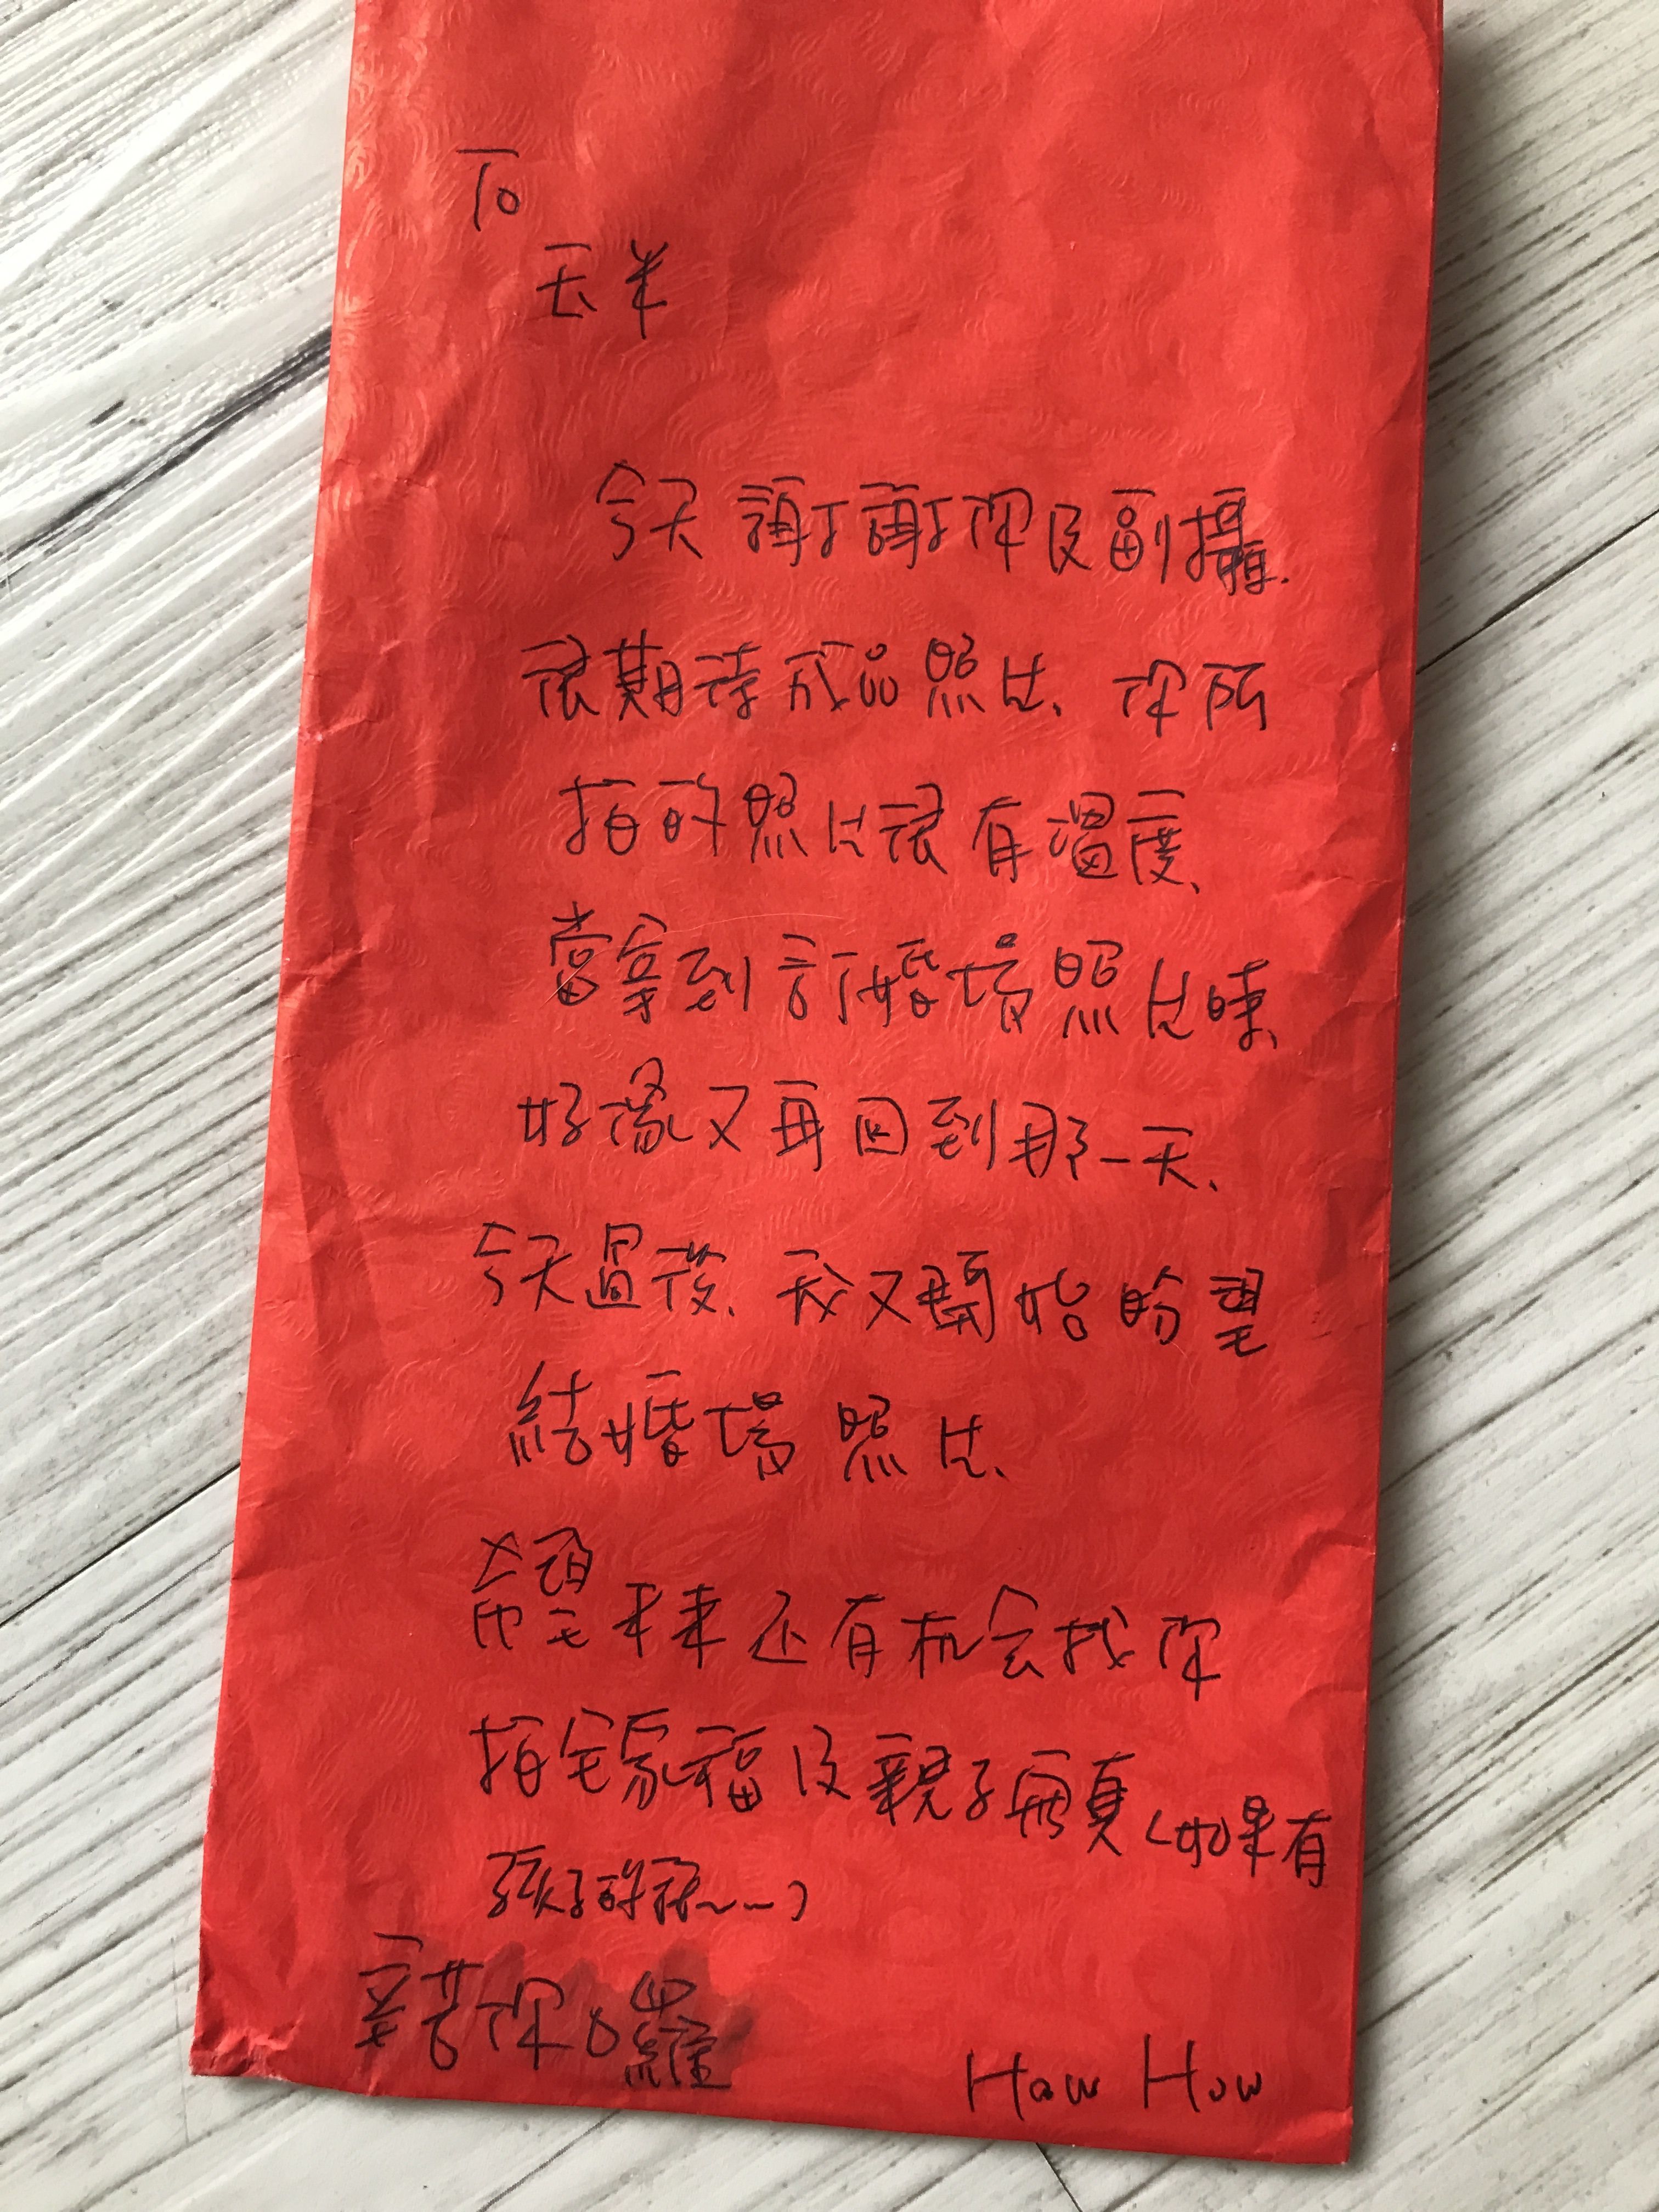 To
玉米
今天謝謝你及副攝.
很期待成品照片、你所
拍的照片很有溫度、
當拿到訂婚場照片時、
好像又再回到那一天、
今天過後、我又開始盼望
結婚場照片、
希望未來还有机会找你
拍全家福及親子寫真（如果有
孩子的話~~~）
辛苦你囉
How How